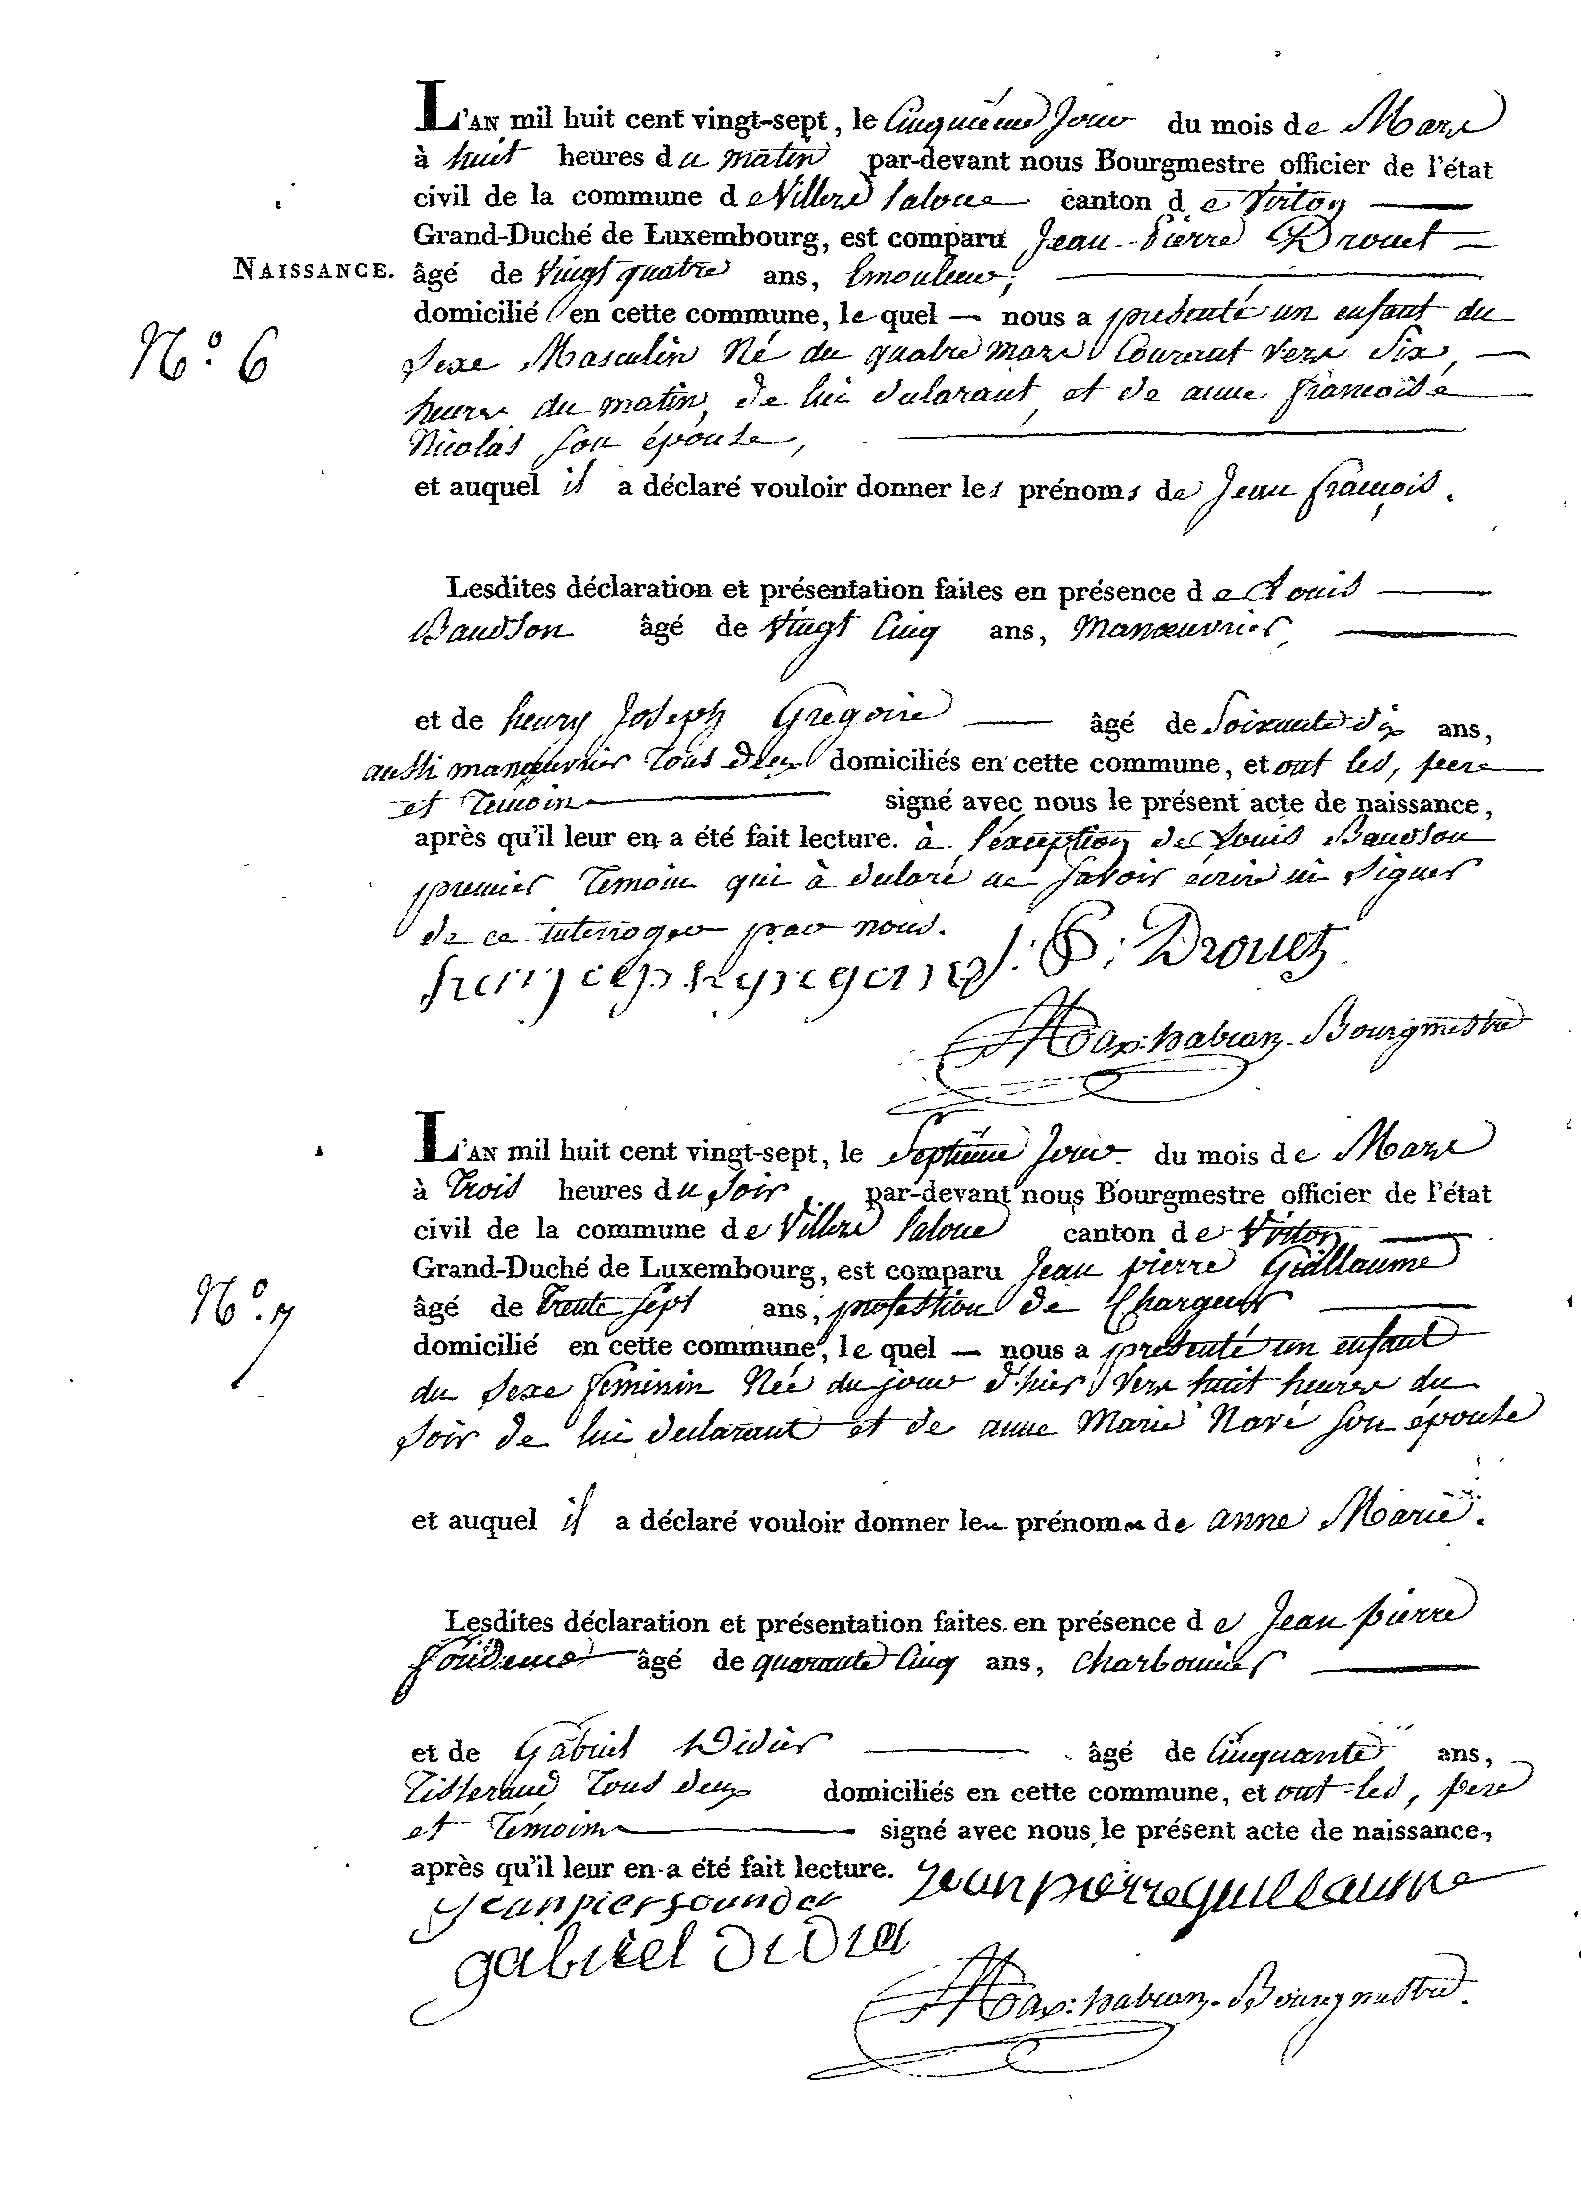 L'AN mil huit cent vingt-sept, le Cinquième Jour du mois de Mars
à huit heures du matin par-devant nous Bourgmestre officier de l'état
civil de la commune de Villers laloue canton de Virton
Grand-Duché de Luxembourg, est comparu Jean Pierre Drouet
NAISSANCE. âgé de vingt quatre ans, Emouleur,
domicilié en cette commune, lequel nous a présenté un enfant du
N.° 6 Sexe Masculin Né du quatre mars Courant vers Six
heures du matin, de lui declarant et de anne francoise
Nicolas son épouse,
et auquel il a déclaré vouloir donner les prénoms de Jean françois.
Lesdites déclaration et présentation faites en présence de Louis
Baudson âgé de vingt Cinq ans, Manœuvrier,
et de henry Joseph Gregoire âgé de Soixante dix ans,
aussi manœuvrier Tous deux domiciliés en cette commune, et ont les, pere
et Témoins signé avec nous le présent acte de naissance,
après qu'il leur en a été fait lecture. à l'exception de Louis Baudson
premier Témoin qui à declaré ne savoir ecrire ni signer
de ce interrogé par nous.
J: P: Drouet
Max: habran. Bourgmestre
L'AN mil huit cent vingt-sept, le Septième Jour du mois de Mars
à Trois heures du Soir, par-devant nous Bourgmestre officier de l'état
civil de la commune de Villers laloue canton de Virton
Grand-Duché de Luxembourg, est comparu Jean pierre Guillaume
N.° 7 âgé de Trente Sept ans, profession de Chargeur
domicilié en cette commune, lequel nous a présenté un enfant
du Sexe feminin Née du jour d'hier vers huit heures du
Soir de lui declarant et de anne Marie Navé son épouse
et auquel il a déclaré vouloir donner les prénoms de anne Marie.
Lesdites déclaration et présentation faites en présence de Jean pierre
âgé de quarante Cinq ans, Charbonnier
et de Gabriel Didier âgé de Cinquante ans,
Tisserand Tous deux domiciliés en cette commune, et ont les, pere
et Témoins signé avec nous le présent acte de naissance,
après qu'il leur en a été fait lecture. jean pierre guillaume
gabriel didier
Max: habran. Bourgmestre.